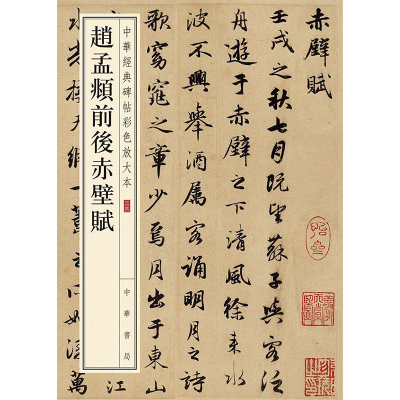 中華經典碑帖彩色放大本
趙孟頫前後赤壁賦
中華書局
赤壁賦
壬戌之秋七月既望蘇子與客泛
舟遊于赤壁之下清風徐来水
波不興舉酒属客誦明月之詩
歌窈窕之章少焉月出于東山
江
光接天縱一葦之所如凌萬